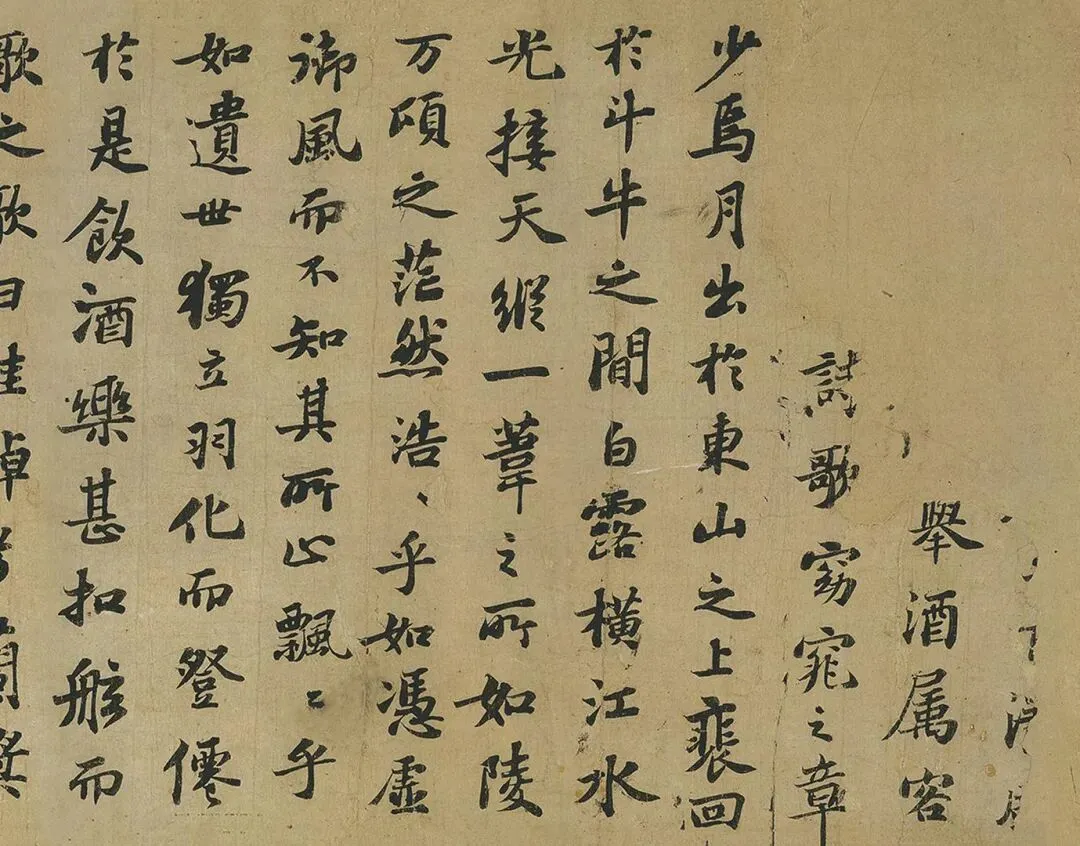 舉酒属客
詩歌窈窕之章
少焉月出於東山之上裴回
於斗牛之間白露橫江水
光接天縱一葦之所如陵
万頃之茫然浩〻乎如憑虛
御風而不知其所止飄〻乎
如遺世獨立羽化而登僊
於是飲酒樂甚扣舷而
歌之歌曰桂棹兮蘭槳